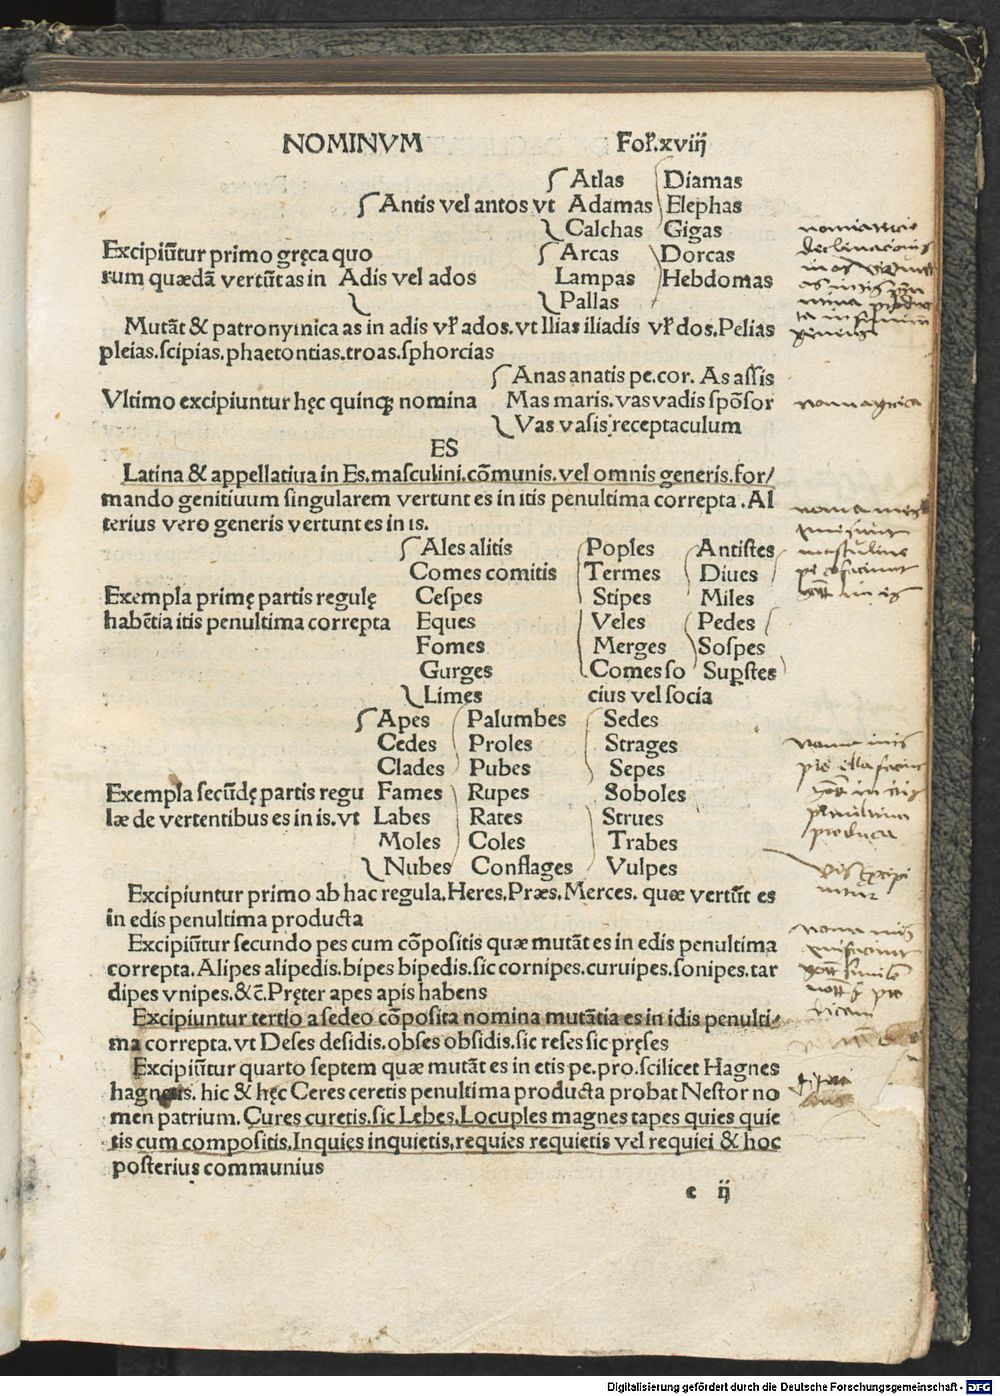 NOMINVM Fol̃.xviij
Atlas Diamas
Antis vel antos vt Adamas Elephas
Calchas Gigas
Excipiũtur primo gręca quo Arcas Dorcas
rum quædã vertũt as in Adis vel ados Lampas Hebdomas
Pallas
Mutãt & patronymica as in adis vł ados. vt Ilias iliadis vł dos. Pelias
pleias. scipias. phaetontias. troas. sphorcias
Anas anatis pe. cor. As assis
Vltimo excipiuntur hęc quinq; nomina Mas maris. vas vadis spõsor
Vas vasis receptaculum
ES
Latina & appellatiua in Es. masculini. cõmunis. vel omnis generis. for/
mando genitiuum singularem vertunt es in itis penultima correpta. Al
terius vero generis vertunt es in is.
Ales alitis Poples Antistes
Comes comitis Termes Diues
Exempla primę partis regulę Cespes Stipes Miles
habẽtia itis penultima correpta Eques Veles Pedes
Fomes Merges Sospes
Gurges Comes so Supstes
Limes cius vel socia
Apes Palumbes Sedes
Cedes Proles Strages
Clades Pubes Sepes
Exempla secũdę partis regu Fames Rupes Soboles
læ de vertentibus es in is. vt Labes Rates Strues
Moles Coles Trabes
Nubes Conflages Vulpes
Excipiuntur primo ab hac regula. Heres. Præs. Merces. quæ vertũt es
in edis penultima producta
Excipiũtur secundo pes cum cõpositis quæ mutãt es in edis penultima
correpta. Alipes alipedis. bipes bipedis. sic cornipes. curuipes. sonipes. tar
dipes vnipes. &c̃. Pręter apes apis habens
Excipiuntur tertio a sedeo cõposita nomina mutãtia es in idis penulti/
ma correpta. vt Deses desidis. obses obsidis. sic reses sic pręses
Excipiũtur quarto septem quæ mutãt es in etis pe. pro. scilicet Hagnes
hagnetis. hic & hęc Ceres ceretis penultima producta probat Nestor no
men patrium. Cures curetis. sic Lebes. Locuples magnes tapes quies quie
tis cum compositis. Inquies inquietis. requies requietis vel requiei & hoc
posterius communius
c ij
Digitalisierung gefördert durch die Deutsche Forschungsgemeinschaft - DFG